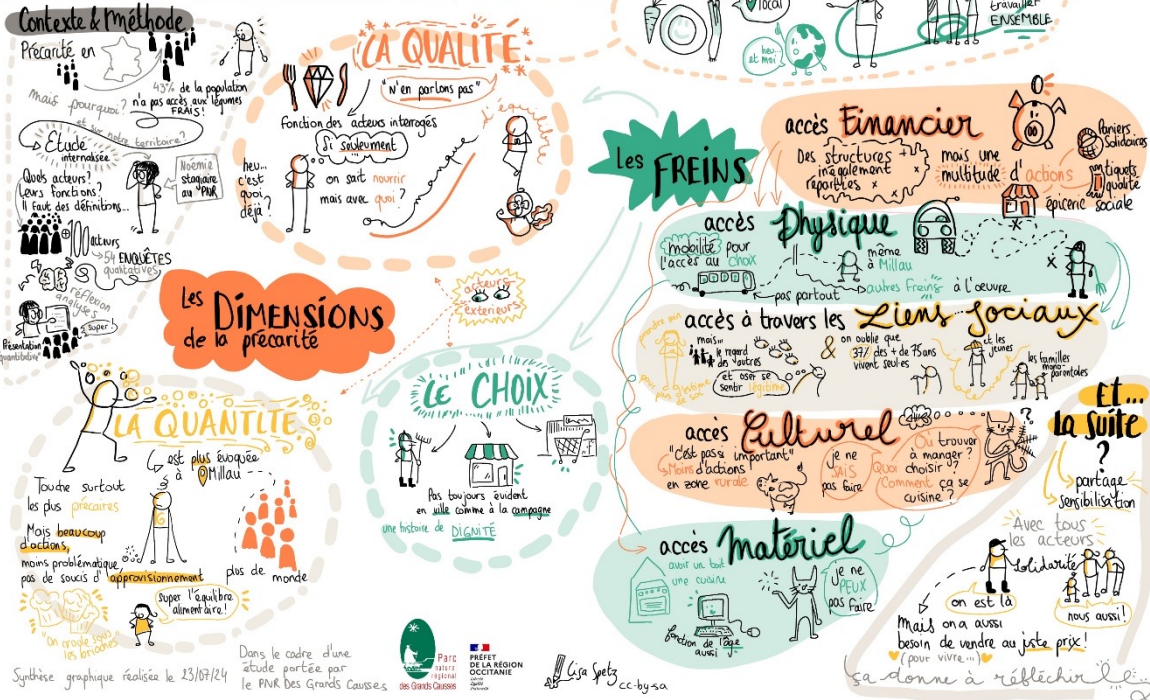 Contexte & Méthode
Précarité en
43% de la population
n'a pas accès aux légumes
FRAIS!
Mais pourquoi?
et sur notre territoire?
Étude
internalisée
Noémie
stagiaire
au PNR
Quels acteurs?
Leurs fonctions?
Il faut des définitions...
+100 acteurs
54 ENQUÊTES
qualitatives
réflexion
analyses
super!
Présentation
"quantitative"
LA QUALITÉ
"N'en parlons pas"
Fonction des acteurs interrogés
Si seulement
heu...
c'est
quoi
déjà?
on sait nourrir
mais avec quoi?
équilibre
local
heu...
et moi
travailler
ENSEMBLE
Les DIMENSIONS
de la précarité
acteurs
extérieurs
LA QUANTITE
est plus évoquée
à Millau
Touche surtout
les plus précaires
Mais beaucoup
d'actions,
moins problématique
pas de soucis d'approvisionnement
plus de monde
super l'équilibre
alimentaire!
"on croule sous
les brioches"
LE CHOIX
Pas toujours évident
en ville comme à la campagne
une histoire de DIGNITÉ
Les FREINS
accès Financier
Des structures
inégalement
réparties
mais une
multitude d'actions
Paniers
Solidaires
tiquets
qualité
épicerie sociale
accès Physique
mobilité pour
l'accès au choix
même
à Millau
pas partout
autres freins à l'oeuvre
accès à travers les Liens Sociaux
prendre soin
mais...
le regard
des autres
et oser se
sentir légitime
& on oublie que
37% des + de 75 ans
vivent seul·es
et les
jeunes
les familles
mono-
parentales
accès Culturel
"c'est pas si important"
Moins d'actions
en zone rurale
je ne
SAIS
pas faire
Où trouver
à manger?
Quoi choisir?
Comment ça se
cuisine?
?
accès Matériel
avoir un toit
une cuisine
fonction de l'âge
aussi
je ne
PEUX
pas faire
Et...
la suite
?
partage
sensibilisation
Avec tous
les acteurs
Solidarité
on est là
nous aussi!
Mais on a aussi
besoin de vendre au juste prix!
(pour vivre...)
ça donne à réfléchir
Synthèse graphique réalisée le 23/07/24
Dans le cadre d'une
étude portée par
le PNR Des Grands Causses
Parc
naturel
régional
des Grands Causses
PRÉFET
DE LA RÉGION
OCCITANIE
Liberté
Égalité
Fraternité
Lisa Spetz
cc-by-sa